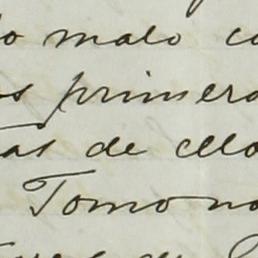 lo malo co
os primera
tas de ello
Tomo no